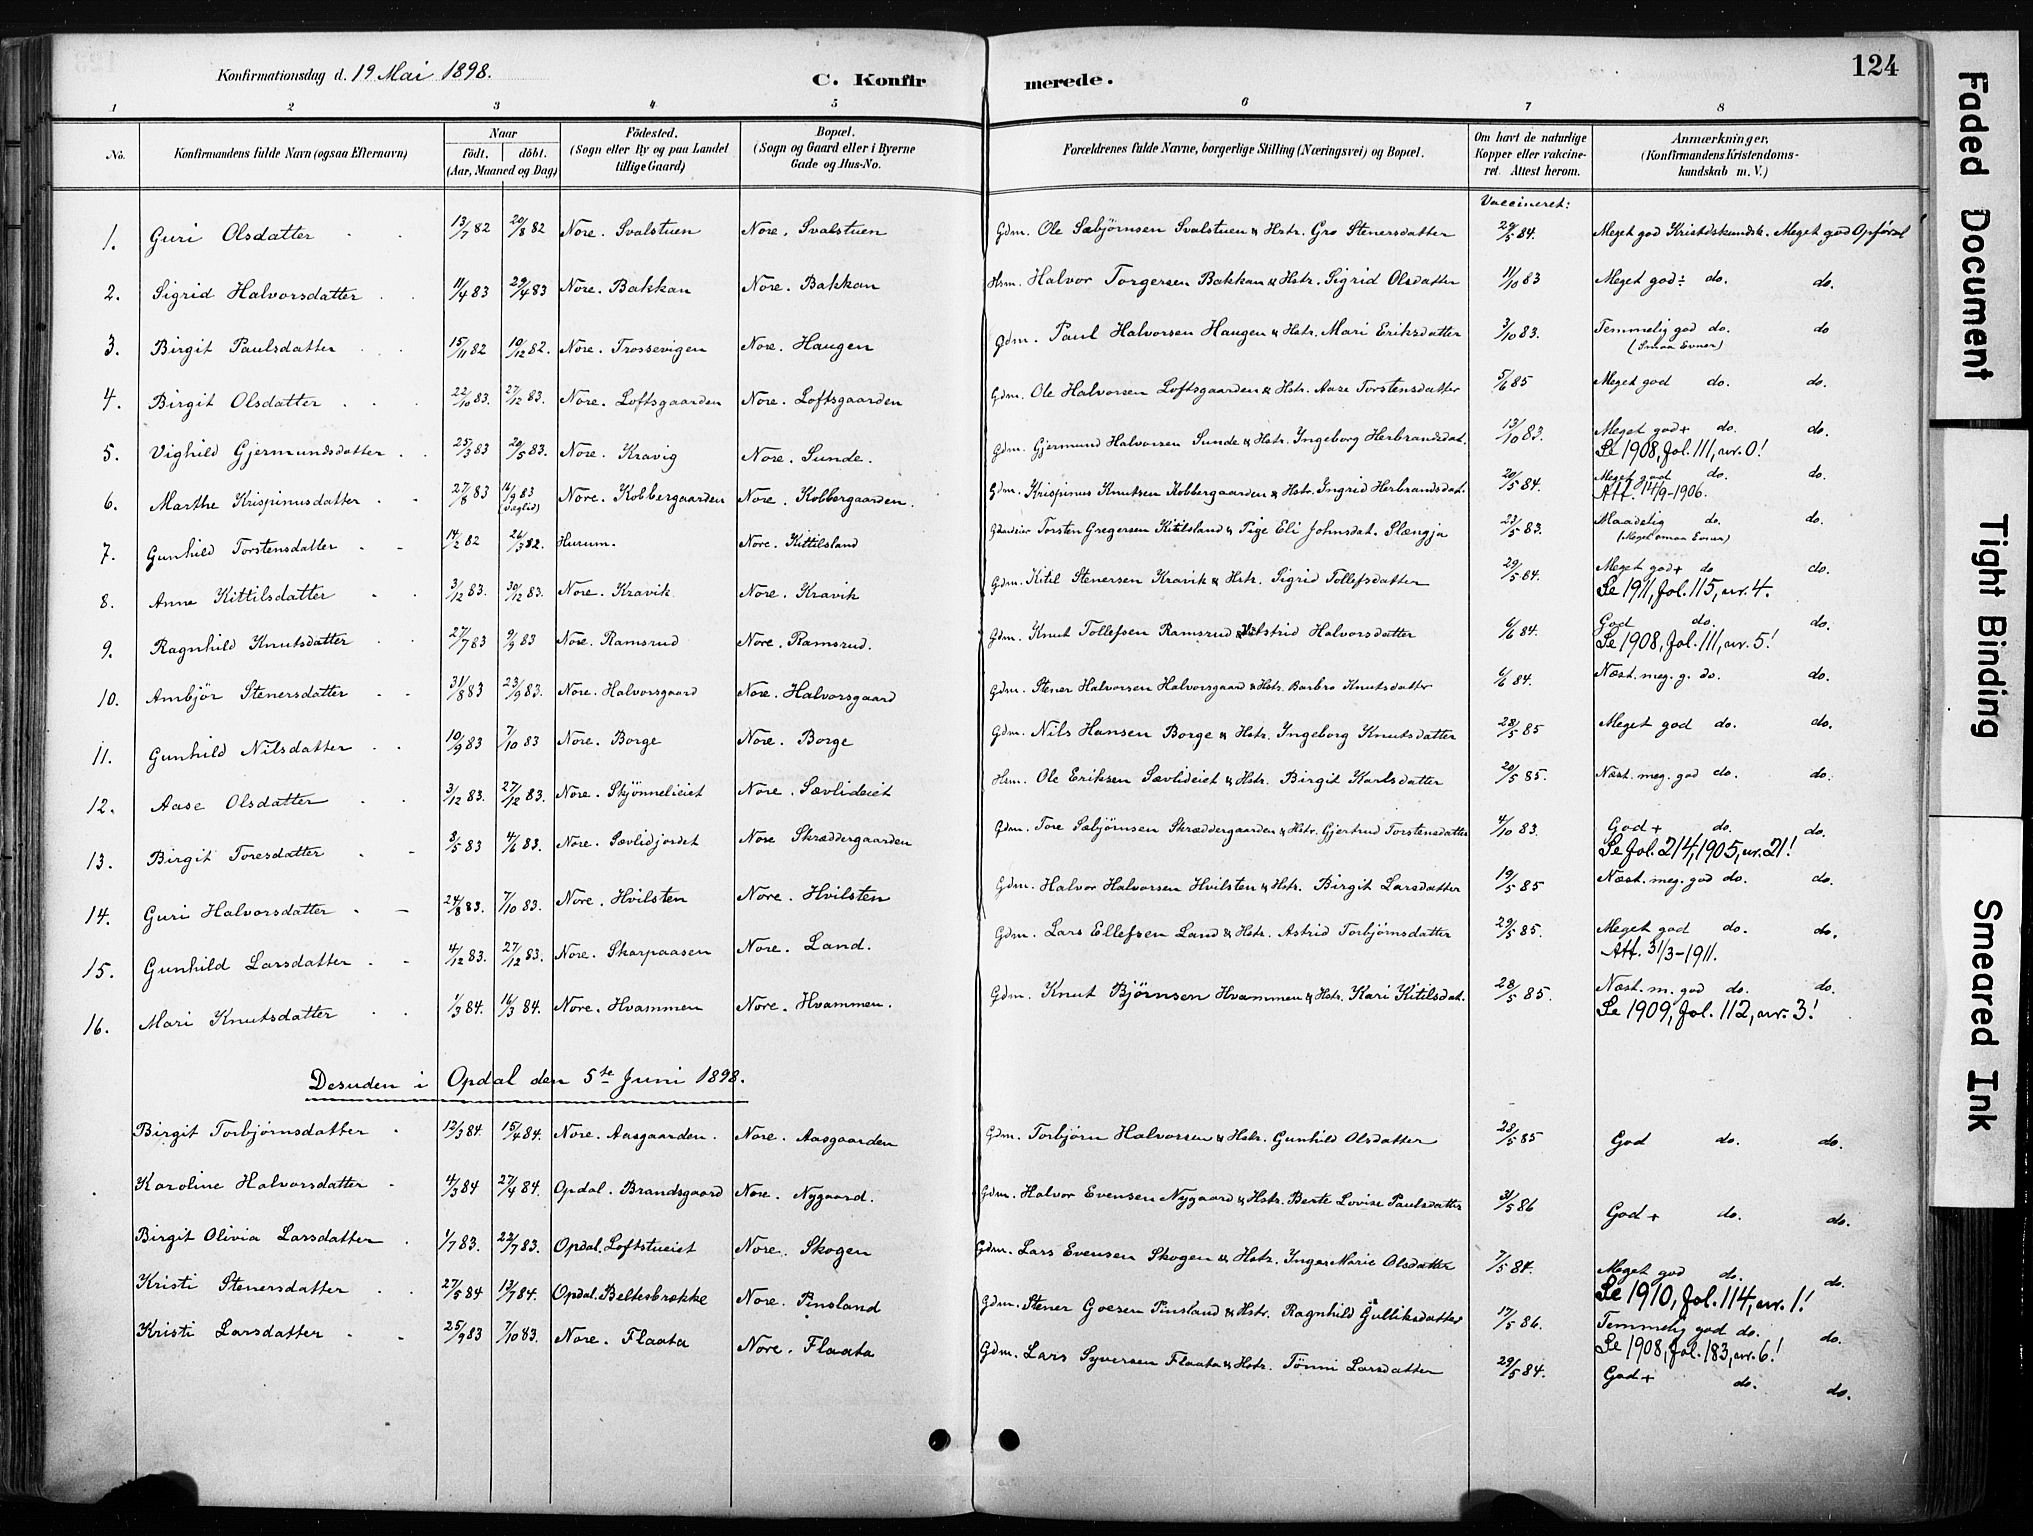 Konfirmationsdag d. 19 Mai 1898.
C. Konfirmerede.
124
1 2 3 4 5 6 7 8
No. Konfirmandens fulde Navn (ogsaa Efternavn) Naar födt. döbt. (Aar, Maaned og Dag) Födested. (Sogn eller By og paa Landet tillige Gaard) Bopæl. (Sogn og Gaard eller i Byerne Gade og Hus-No. Forældrenes fulde Navne, borgerlige Stilling (Næringsvei) og Bopæl. Om havt de naturlige Kopper eller vakcineret. Attest herom. Anmærkninger, (Konfirmandens Kristendomskundskab m. V.)
Vaccineret:
1. Guri Olsdatter 13/7 82 20/8 82 Nore. Svalstuen Nore. Svalstuen Gdm. Ole Sæbjörnsen Svalstuen & Hstr. Gro Stenersdatter 29/5 84. Meget god Kristdskundsk. Meget god Opförsel
2. Sigrid Halvorsdatter 11/4 83 29/4 83 Nore. Bakkan Nore. Bakkan Hsm. Halvor Torgersen Bakkan & Hstr. Sigrid Olsdatter 11/10 83 Meget god÷ do. do.
3. Birgit Paulsdatter 15/11 82 10/12 82. Nore. Trossevigen Nore. Haugen Gdm. Paul Halvorsen Haugen & Hstr. Mari Eriksdatter 3/10 83. Temmelig god do. do
(Smaa Evner)
4. Birgit Olsdatter 22/10 83. 27/12 83. Nore. Loftsgaarden Nore. Loftsgaarden Gdm. Ole Halvorsen Loftsgaarden & Hstr. Aase Torstensdatter 5/6 85 Meget god do. do.
5. Vighild Gjermundsdatter 25/3 83 20/5 83. Nore. Kravig Nore. Sunde. Gdm. Gjermund Halvorsen Sunde & Hstr. Ingeborg Herbrandsdat. 13/10 83. Meget god+ do. do.
Se 1908, fol. 111, nr. 0!
6. Marthe Krispinusdatter 27/8 83 16/9 83 Nore. Kobbergaarden Nore. Kobbergaarden. Gdm. Krispinus Knutsen Kobbergaarden & Hstr. Ingrid Herbrandsdat. 20/5 84. Meget god do. do.
Att. 14/9-1906.
7. Gunhild Torstensdatter 14/2 82 26/3 82. Hurum. Nore. Kittilsland Torsten Gregersen Kitilsland & Pige Eli Johnsdat. Slængja 23/5 83. Maadelig do. do.
(Meget smaa Evner)
8. Anne Kittilsdatter 3/12 83. 30/12 83. Nore. Kravik Nore. Kravik Gdm. Kitil Stenersen Kravik & Hstr. Sigrid Tollefsdatter 29/5 84. Meget god+ do do.
Se 1911, fol. 115, nr. 4.
9. Ragnhild Knutsdatter 27/7 83 9/9 83 Nore. Ramsrud Nore. Ramsrud. Gdm. Knut Tollefsen Ramsrud Halvorsdatter 6/6 84. God do. do.
Se 1908, fol. 111, nr. 5!
10. Ambjör Stenersdatter 31/8 83 23/9 83. Nore. Halvorsgaard Nore. Halvorsgaard Gdm. Stener Halvorsen Halvorsgaard & Hstr. Barbro Knutsdatter 6/6 84. Næst. meg. g. do. do.
11. Gunhild Nilsdatter 10/9 83 7/10 83 Nore. Borge Nore. Borge Gdm. Nils Hansen Borge & Hstr. Ingeborg Knutsdatter 28/5 85 Meget god do. do.
12. Aase Olsdatter 3/12 83. 27/12 83. Nore. Skjönnelieiet Nore. Sævlideiet Hsm. Ole Eriksen Sævlideiet & Hstr. Birgit Karlsdatter 20/5 85. Næst. meg. god do. do.
13. Birgit Toresdatter 3/5 83 4/6 83. Nore. Sævlidjordet Nore Skræddergaarden Gdm. Tore Sæbjörnsen Skræddergaarden & Hstr. Gjertrud Torstensdatter 4/10 83. God + do. do.
Se fol. 214, 1905, nr. 21!
14. Guri Halvorsdatter 24/8 83. 7/10 83. Nore. Hvilsten Nore. Hvilsten Gdm. Halvor Halvorsen Hvilsten & Hstr. Birgit Larsdatter 19/5 85 Næst. meg. god do. do.
15. Gunhild Larsdatter 4/12 83. 27/12 83. Nore. Skarpaasen Nore. Land. Gdm. Lars Ellefsen Land & Hstr. Astrid Torbjörnsdatter 29/5 85. Meget god do. do.
Att. 31/3-1911.
16. Mari Knutsdatter 1/3 84. 16/3 84. Nore. Hvammen Nore. Hvammen. Gdm. Knut Björnsen Hvammen & Hstr. Kari Kitilsdat. 28/5 85. Næst. m. god do. do.
Se 1909, fol. 112, nr. 3!
Desuden i Opdal den 5te Juni 1898.
Birgit Torbjörnsdatter 12/3 84. 15/4 84. Nore. Aasgaarden. Nore. Aasgaarden Gdm. Torbjörn Halvorsen & Hstr. Gunhild Olsdatter 28/5 85 God do. do.
Karoline Halvorsdatter 4/3 84 27/4 84. Opdal. Brandsgaard Nore. Nygaard. Gdm. Halvor Evensen Nygaard & Hstr. Berte Lovise Paulsdatter 31/5 86 God + do. do.
Birgit Olivia Larsdatter 1/7 83. 22/7 83. Opdal. Loftstueiet Nore. Skogen Gdm. Lars Evensen Skogen & Hstr. Inger Marie Olsdatter 7/5 84. Meget god do. do.
Se 1910, fol. 114, nr. 1!
Kristi Stenersdatter 27/5 84 13/7 84. Opdal. Beltesbrække Nore. Pinsland Gdm. Stener Goesen Pinsland & Hstr. Ragnhild Gulliksdatter 17/5 86. Temmelig god do. do.
Se 1908, fol. 183, nr. 6!
Kristi Larsdatter 25/9 83 7/10 83. Nore. Flaata Nore. Flaata Gdm. Lars Syversen Flaata & Hstr. Tönni Larsdatter 29/5 84. God + do. do.
Faded Document
Tight Binding
Smeared Ink